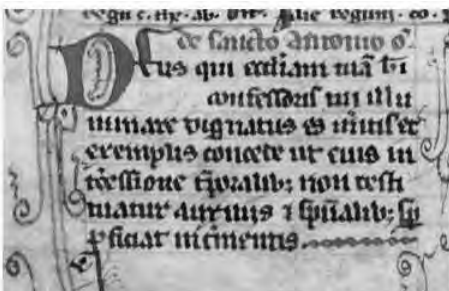 de sancto antonio o̅.
Deus qui eccl̅iam tuā b̅i
confessoris tui illu
minare dignatus es m̅itis et
exemplis concede ut eius in
t̅cessione t̅poralib; non desti
tuatur auxiliis ⁊ sp̅ualib; sp̅
ꝓficiat incrementis.